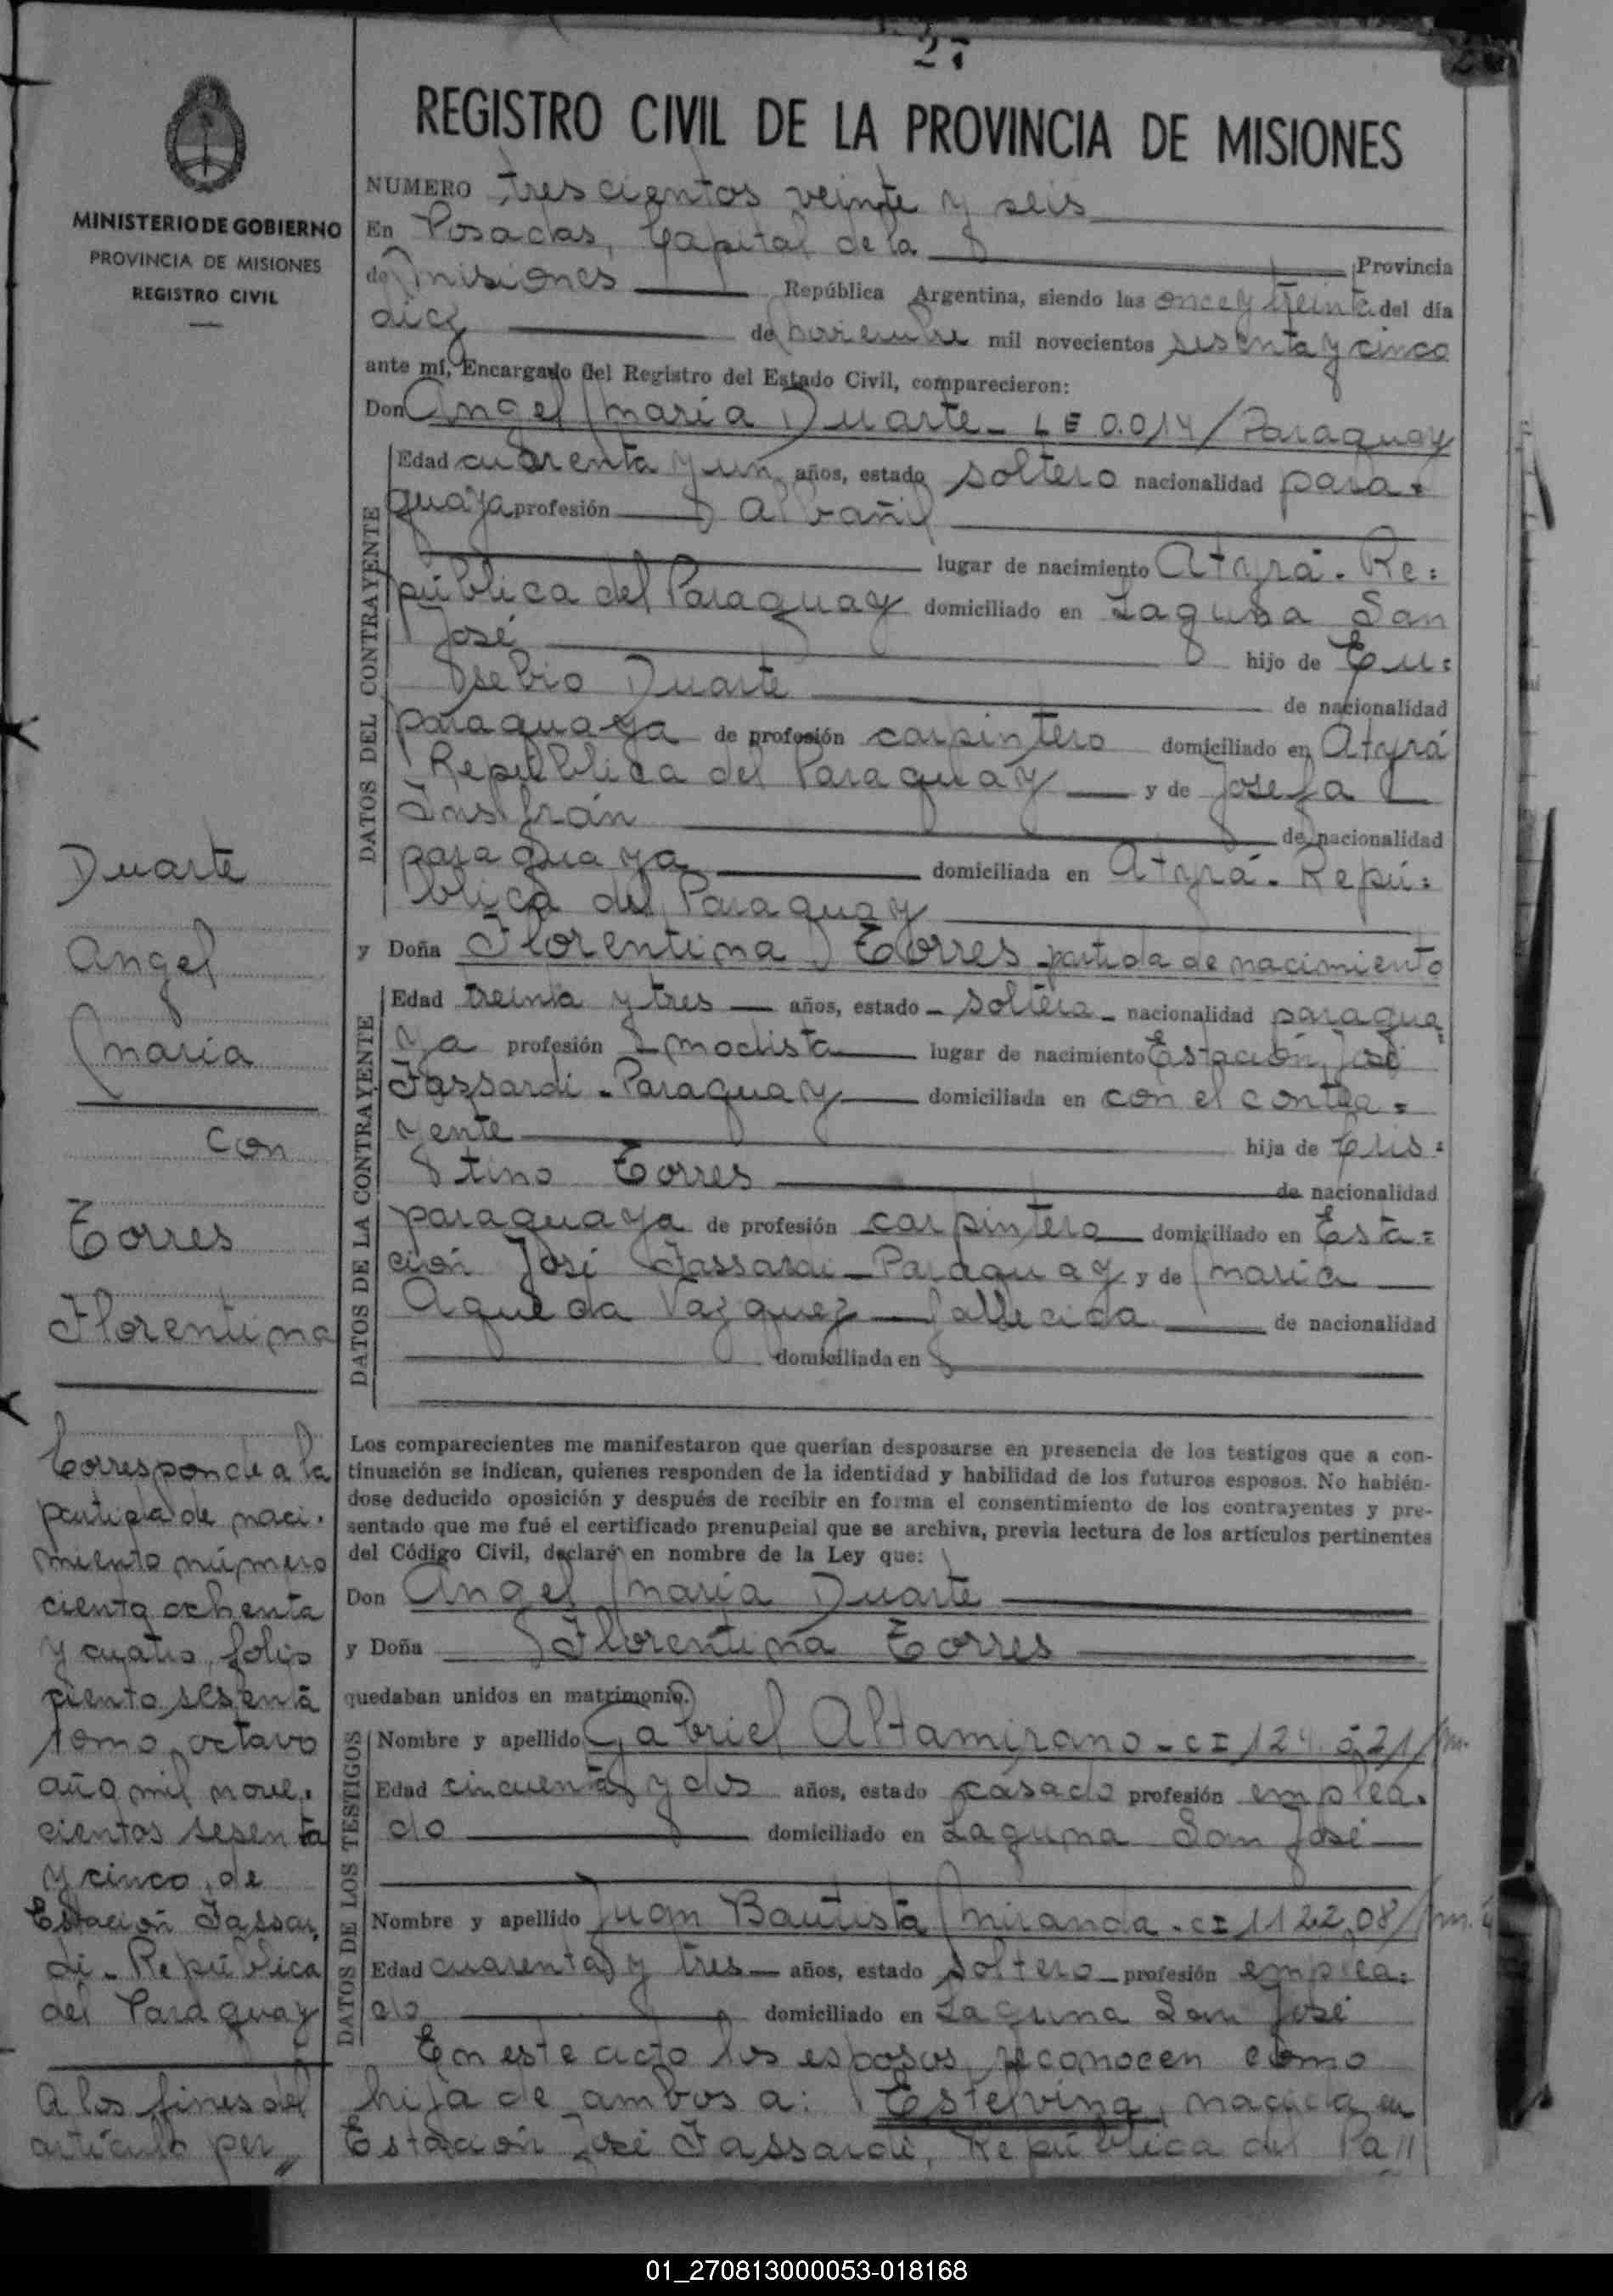 27
REGISTRO CIVIL DE LA PROVINCIA DE MISIONES
MINISTERIO DE GOBIERNO
PROVINCIA DE MISIONES
REGISTRO CIVIL
NUMERO trescientos veinte y seis
En Posadas, Capital de la Provincia
de Misiones República Argentina, siendo las once y treinta del día
diez de noviembre mil novecientos sesenta y cinco
ante mí, Encargado del Registro del Estado Civil, comparecieron:
Don Angel Maria Duarte - LE 0.014/Paraguay
DATOS DEL CONTRAYENTE
Edad cuarenta y un años, estado soltero nacionalidad para=
guaya profesión Albañil
lugar de nacimiento Atyrá - Re=
pública del Paraguay domiciliado en Laguna San
José hijo de Eu=
sebio Duarte de nacionalidad
paraguaya de profesión carpintero domiciliado en Atyrá
República del Paraguay y de Josefa
Insfrán de nacionalidad
paraguaya domiciliada en Atyrá - Repú=
blica del Paraguay
y Doña Florentina Torres partida de nacimiento
DATOS DE LA CONTRAYENTE
Edad treinta y tres años, estado - soltera - nacionalidad paragua=
ya profesión modista lugar de nacimiento Estación José
Fassardi - Paraguay domiciliada en con el contra=
yente hija de Cris=
tino Torres de nacionalidad
paraguaya de profesión carpintero domiciliado en Esta=
ción José Fassardi - Paraguay y de Maria
Agueda Vazquez - fallecida de nacionalidad
domiciliada en
Los comparecientes me manifestaron que querían desposarse en presencia de los testigos que a con-
tinuación se indican, quienes responden de la identidad y habilidad de los futuros esposos. No habién-
dose deducido oposición y después de recibir en forma el consentimiento de los contrayentes y pre-
sentado que me fué el certificado prenupcial que se archiva, previa lectura de los artículos pertinentes
del Código Civil, declaré en nombre de la Ley que:
Don Angel Maria Duarte
y Doña Florentina Torres
quedaban unidos en matrimonio.
DATOS DE LOS TESTIGOS
Nombre y apellido Gabriel Altamirano - CI
Edad cincuenta y dos años, estado casado profesión emplea=
do domiciliado en Laguna San José
Nombre y apellido Juan Bautista Miranda - CI 112208/
Edad cuarenta y tres años, estado soltero - profesión emplea=
do domiciliado en Laguna San José
En este acto los esposos reconocen como
hija de ambos a: Estelvina, nacida en
Estación José Fassardi, República del Pa//
Duarte
Angel
Maria
con
Torres
Florentina
Corresponde a la
partida de naci=
miento número
ciento ochenta
y cuatro, folio
ciento sesenta
tomo octavo
año mil nove=
cientos sesenta
y cinco, de
Estación Fassar=
di - República
del Paraguay
A los fines del
artículo per//
01_270813000053-018168